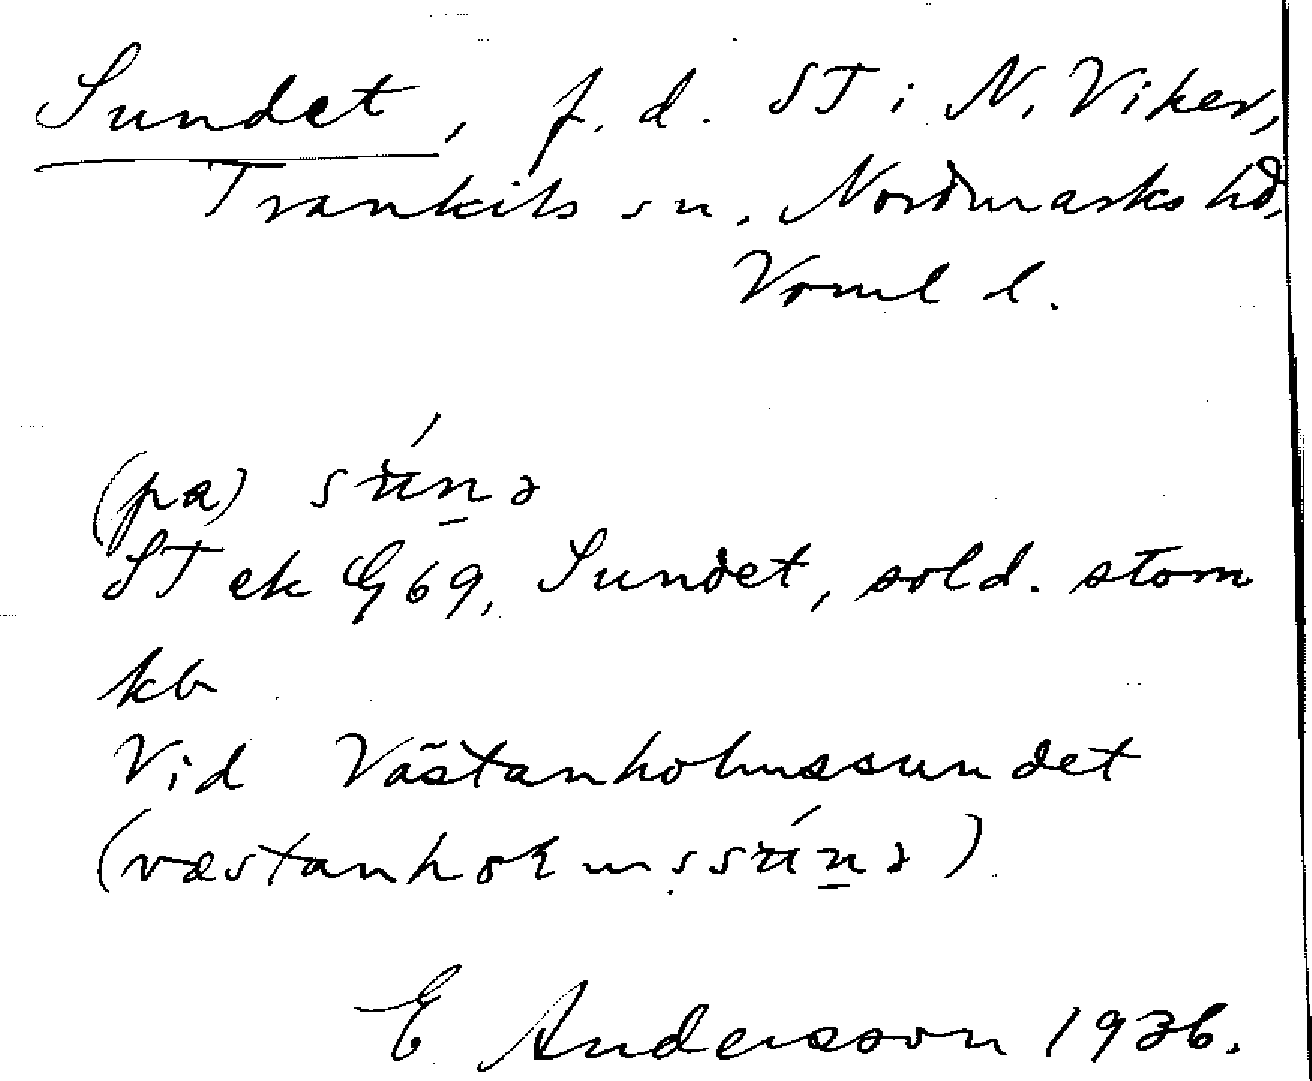 Sundet, f. d. ST i N. Viker,
Trankils sn, Nordmarks hd,
Vrml l.
(pa) sʉ́n̲ə
ST ek G69, Sundet, sold. stom
kb
Vid Västanholmssundet
(væstanholmssʉ́n̲ə)
E Andersson 1936.